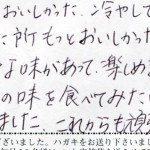 おいしかった。冷やして
た所もっとおいしかった
な味があって、楽しめま
の味を食べてみたい
ました。これからも頑
ざいました。ハガキをお送り下さいま